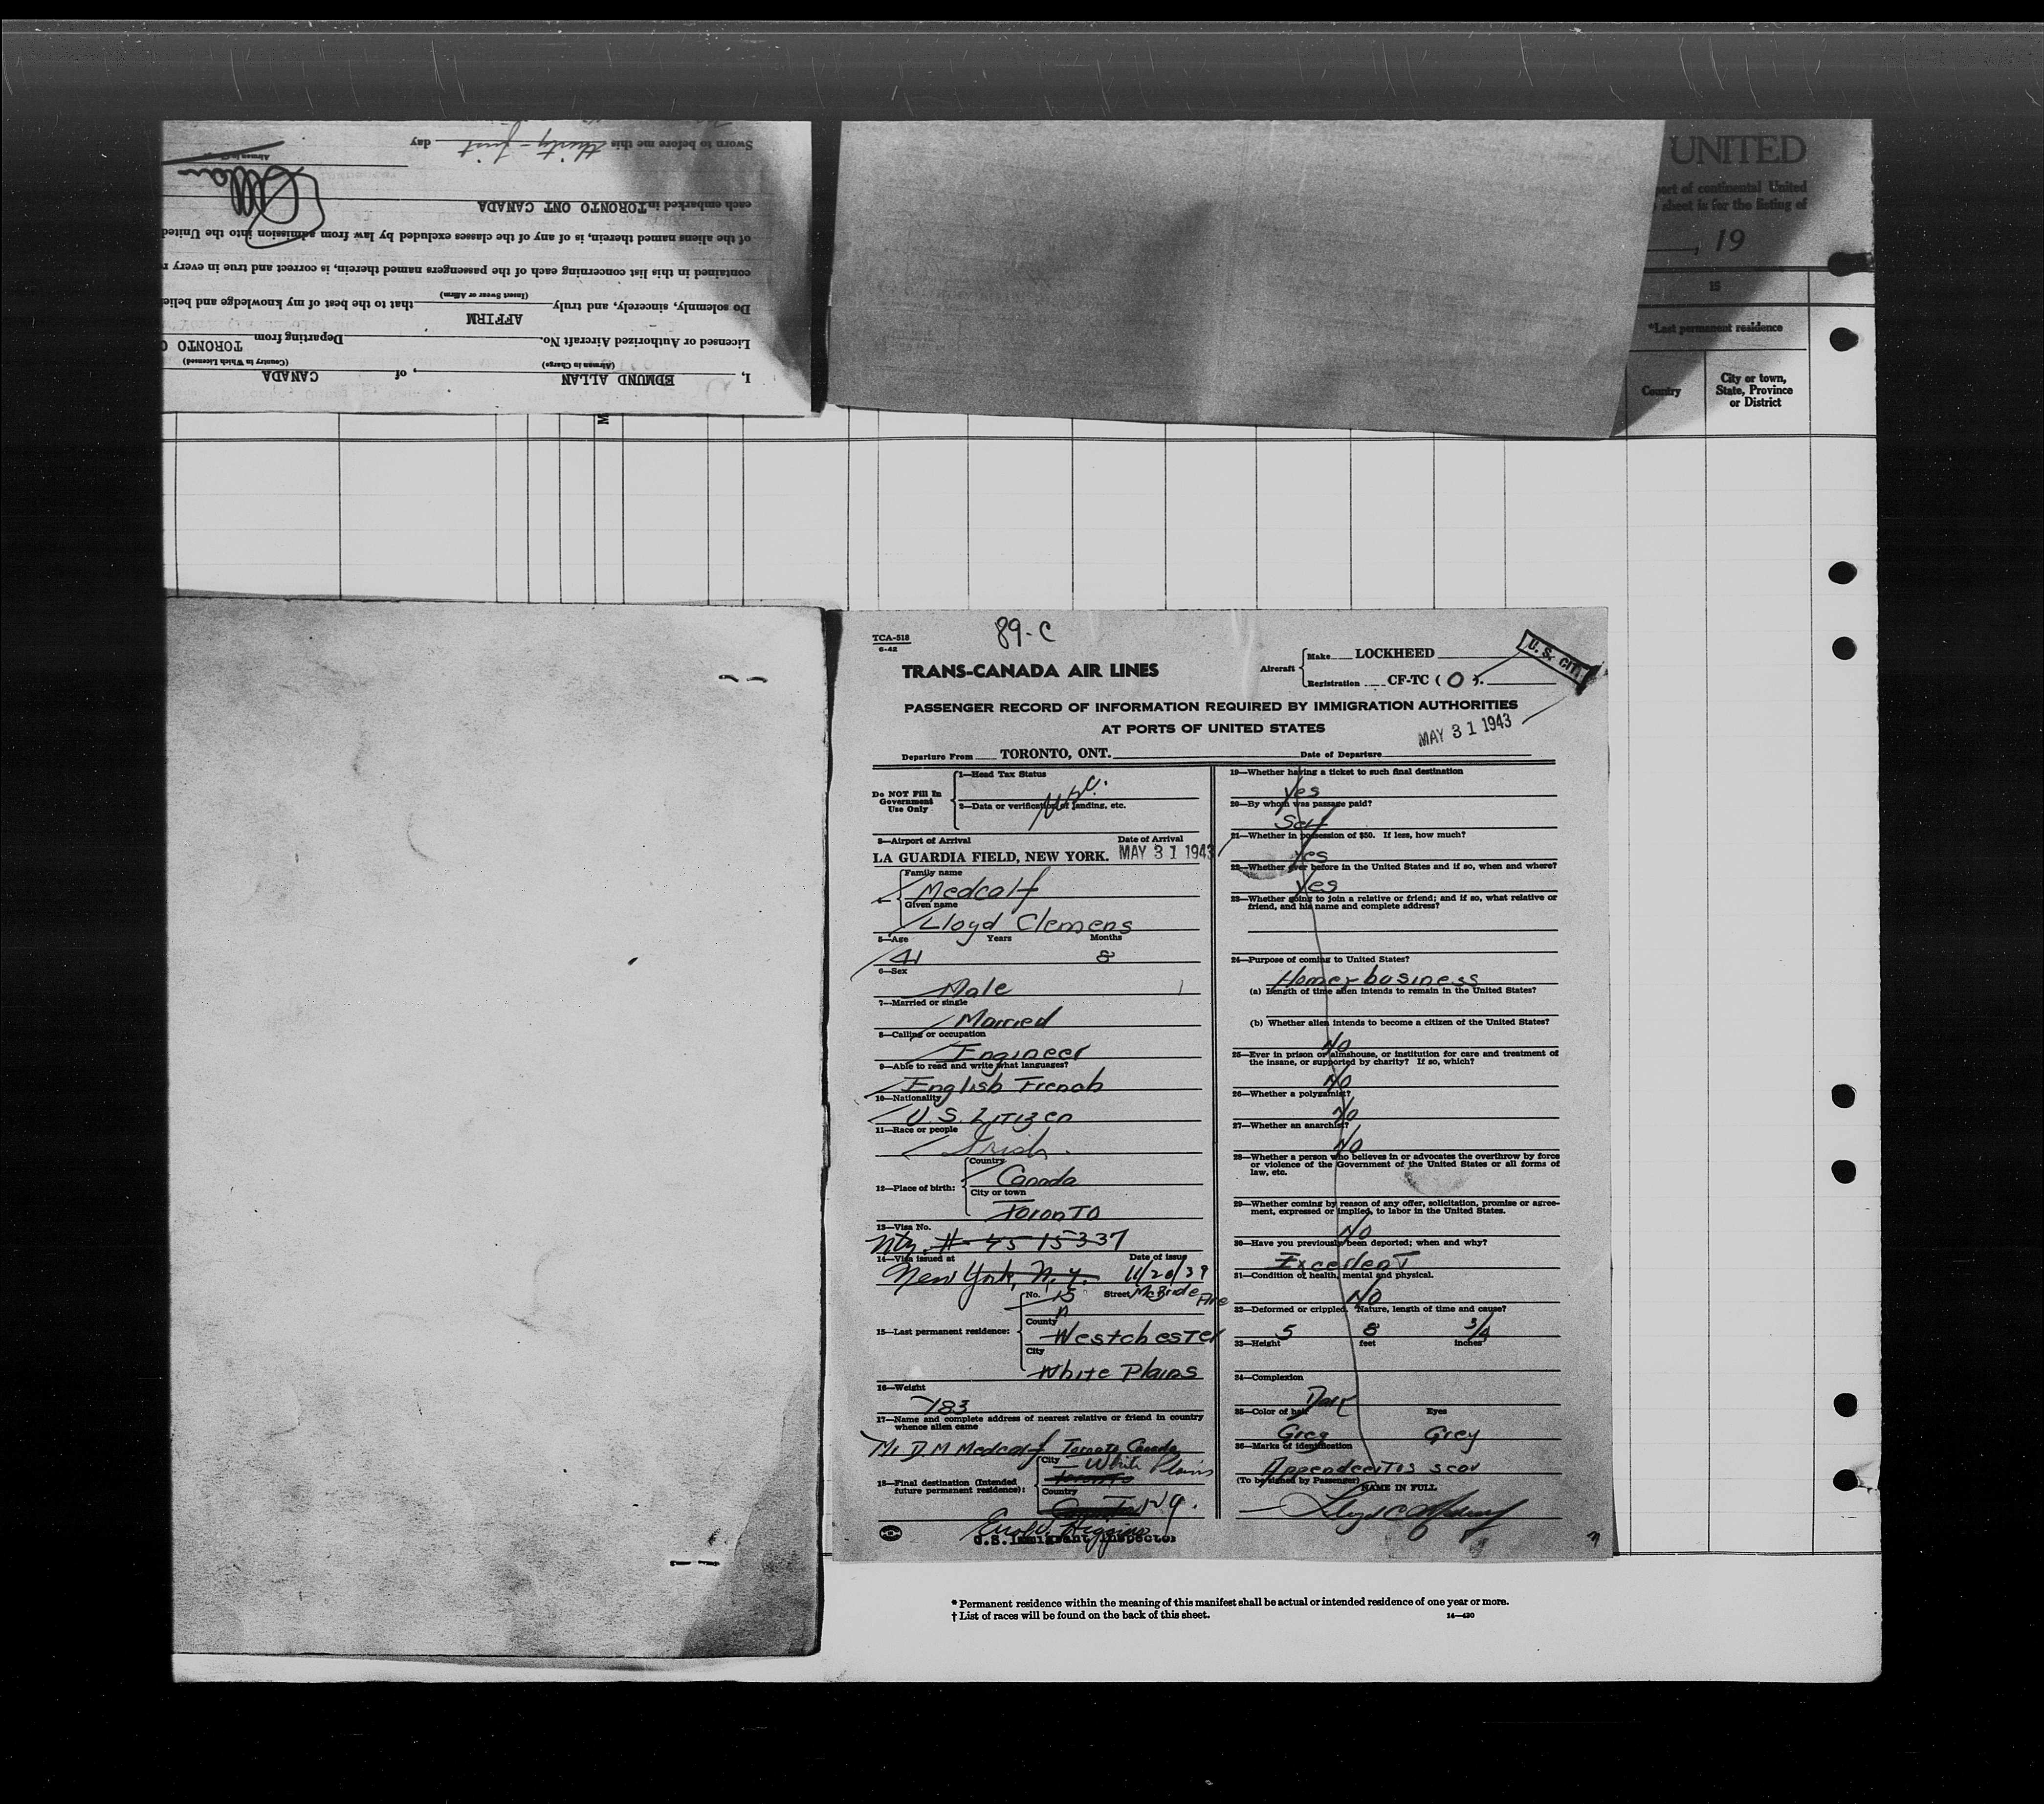 Sworn to before me this thirty-first day
Airman in Charge
each embarked in TORONTO ONT CANADA
of the aliens named therein, is of any of the classes excluded by law from admission into the United
contained in this list concerning each of the passengers named therein, is correct and true in every
Do solemnly, sincerely, and truly AFFIRM that to the best of my knowledge and
(Insert Swear or Affirm)
Licensed or Authorized Aircraft No. Departing from TORONTO
(Airman in Charge) (Country in Which Licensed)
I, EDMUND ALLAN, of CANADA
UNITED
port of continental United
sheet is for the listing of
, 19
15
*Last permanent residence
Country
City or town,
State, Province
or District
TCA-518
6-42
89-C
TRANS-CANADA AIR LINES
Aircraft
Make LOCKHEED
Registration CF-TC ( O ).
U. S. CIT
PASSENGER RECORD OF INFORMATION REQUIRED BY IMMIGRATION AUTHORITIES
AT PORTS OF UNITED STATES
MAY 31 1943
Departure From TORONTO, ONT. Date of Departure
Do NOT Fill In
Government
Use Only
1—Head Tax Status
2—Data or verification of landing, etc.
3—Airport of Arrival Date of Arrival
LA GUARDIA FIELD, NEW YORK. MAY 31 1943
Family name
Medcalf
Given name
Lloyd Clemens
5—Age Years Months
41 8
6—Sex
Male
7—Married or single
Married
8—Calling or occupation
Engineer
9—Able to read and write what languages?
English French
10—Nationality
U.S. Citizen
11—Race or people
Irish
12—Place of birth:
Country
Canada
City or town
Toronto
13—Visa No.
Ntz. # 4515337
14—Visa issued at Date of issue
New York, N.Y. 11/20/39
15—Last permanent residence:
No. 15 Street McBride Ave
County
Westchester
City
White Plains
16—Weight
183
17—Name and complete address of nearest relative or friend in country
whence alien came
Mr D M Medcalf Toronto Canada
18—Final destination (Intended
future permanent residence):
City White Plains
Toronto
Country
N.Y.
U.S. Immigrant Inspector
19—Whether having a ticket to such final destination
Yes
20—By whom was passage paid?
Self
21—Whether in possession of $50. If less, how much?
Yes
22—Whether ever before in the United States and if so, when and where?
Yes
23—Whether going to join a relative or friend; and if so, what relative or
friend, and his name and complete address?
24—Purpose of coming to United States?
Home & business
(a) Length of time alien intends to remain in the United States?
(b) Whether alien intends to become a citizen of the United States?
No
25—Ever in prison or almshouse, or institution for care and treatment of
the insane, or supported by charity? If so, which?
No
26—Whether a polygamist?
No
27—Whether an anarchist?
No
28—Whether a person who believes in or advocates the overthrow by force
or violence of the Government of the United States or all forms of
law, etc.
29—Whether coming by reason of any offer, solicitation, promise or agree-
ment, expressed or implied, to labor in the United States.
No
30—Have you previously been deported; when and why?
Excellent
31—Condition of health, mental and physical.
No
32—Deformed or crippled. Nature, length of time and cause?
5 8 3/4
33—Height feet inches
34—Complexion
Dark
35—Color of hair Eyes
Grey Grey
36—Marks of identification
Appendecitos scar
(To be signed by Passenger) NAME IN FULL
* Permanent residence within the meaning of this manifest shall be actual or intended residence of one year or more.
† List of races will be found on the back of this sheet. 14—430